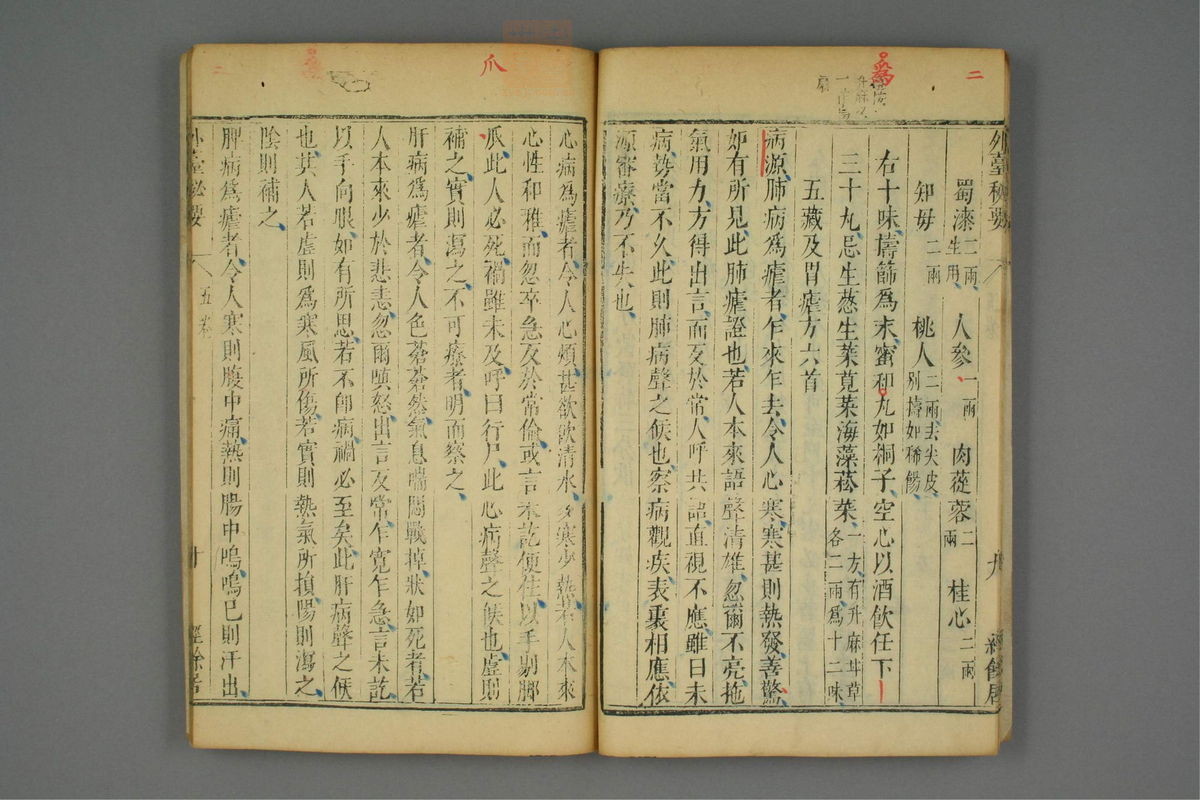 二
外臺秘要
九
經餘居
蜀漆二兩生用 人參一兩 肉蓯蓉二兩 桂心二兩
知母二兩 桃人二兩去尖皮別擣如稀餳
右十味擣篩爲末蜜和丸如桐子空心以酒飲任下
三十丸忌生葱生菜莧菜海藻菘菜一方有升麻斗草各二兩爲十二味
五藏及胃瘧方六首
病源肺病爲瘧者乍來乍去令人心寒寒甚則熱發善驚
如有所見此肺瘧證也若人本來語聲清雄忽爾不亮拖
氣用力方得出言而反於常人呼共語直視不應雖曰未
病勢當不久此則肺病聲之候也察病觀疾表裏相應依
源審療乃不失也
爪
心病爲瘧者令人心煩甚欲飲清水多寒少熱若人本來
心性和雅而忽卒急反於常倫或言未訖便住以手剔脚
爪此人必死禍雖未及呼曰行尸此心病聲之候也虛則
補之實則瀉之不可療者明而察之
肝病爲瘧者令人色蒼蒼然氣息喘悶戰掉狀如死者若
人本來少於悲恚忽爾嗔怒出言反常乍寬乍急言未訖
以手向眼如有所思若不卽病禍必至矣此肝病聲之候
也其人若虛則爲寒風所傷若實則熱氣所損陽則瀉之
陰則補之
脾病爲瘧者令人寒則腹中痛熱則腸中鳴鳴已則汗出
外臺秘要
五卷
十
經餘居
二